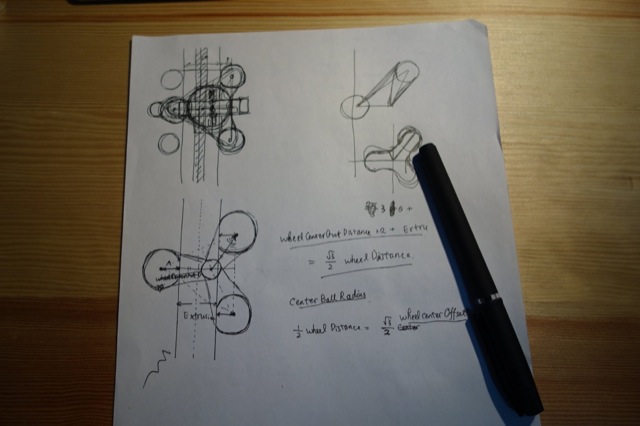 wheel Center Out Distance x2 + Extru
= √3/2 wheel Distance
Center Ball Radius
1/2 wheel Distance = √3/2 wheel center Offset
Center
Extru